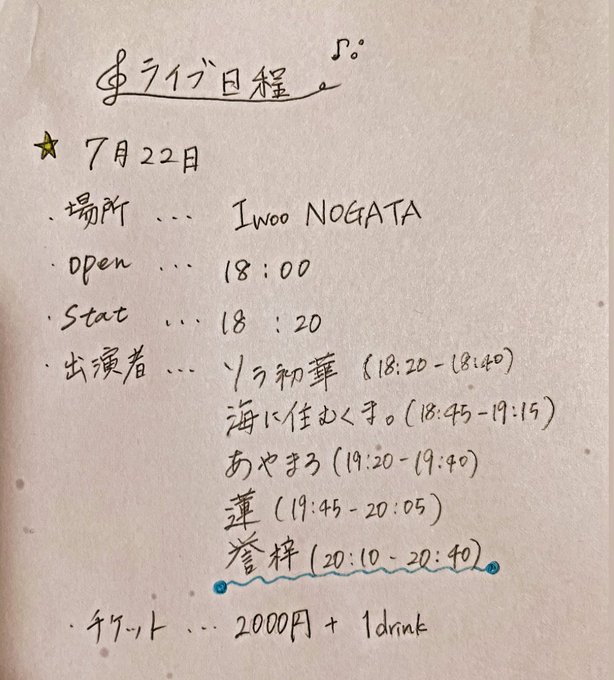 ライブ日程
7月22日
・場所 ... Iwoo NOGATA
・open ... 18:00
・Stat ... 18:20
・出演者 ... ソラ初華 (18:20-18:40)
海に住むくま。(18:45-19:15)
あやまろ (19:20-19:40)
蓮 (19:45-20:05)
誉梓 (20:10-20:40)
・チケット ... 2000円 + 1drink